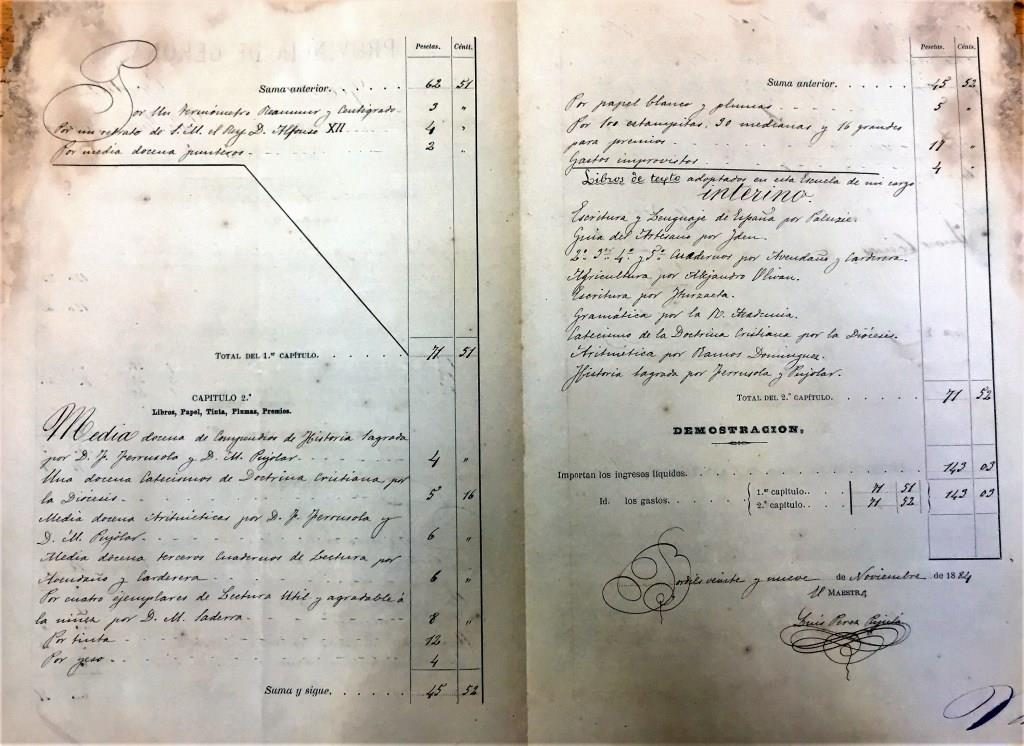 Pesetas. Cénti.
Suma anterior. 62 51
Por un termómetro Reaumur y Centigrado 3 "
Por un retrato de S. M. el Rey D. Alfonso XII 4 "
Por media docena punteros 2 "
TOTAL DEL 1.er CAPÍTULO. 71 51
CAPITULO 2.º
Libros, Papel, Tinta, Plumas, Premios.
Media docena de Compendios de Historia Sagrada
por D. J. Ferrusola y D. M. Pujolar 4 "
Una docena Catecismos de Doctrina Cristiana por
la Diócesis 5 16
Media docena Aritméticas por D. J. Ferrusola y
D. M. Pujolar 6 "
Media docena terceros Cuadernos de Lectura por
Avendaño y Carderera 6 "
Por cuatro ejemplares de Lectura Util y agradable á
la niñez por D. M. Saderra 8 "
Por tinta 12
Por yeso 4
Suma y sigue. 45 52
PROVINCIA DE GERONA
Pesetas. Cénts.
Suma anterior. 45 52
Por papel blanco y plumas 5 "
Por 100 estampitas, 30 medianas y 16 grandes
para premios 17 "
Gastos improvistos 4 "
Libros de texto adoptados en esta Escuela de mi cargo
interino.
Escritura y Lenguaje de España por Paluzie.
Guia del Artesano por Iden.
2º 3º 4º y 5º Cuadernos por Avendaño y Carderera.
Agricultura por Alejandro Olivan.
Escritura por Iturzaeta.
Gramática por la R. Academia.
Catecismo de la Doctrina Cristiana por la Diócesis.
Aritmética por Ramos Dominguez.
Historia Sagrada por Ferrusola y Pujolar.
TOTAL DEL 2.º CAPÍTULO. 71 52
DEMOSTRACION,
Importan los ingresos líquidos. 143 03
Id. los gastos. 1.er capítulo.. 71 51
2.º capítulo.. 71 52
143 03
veinte y nueve de Noviembre de 1884
El MAESTRO
Luis Perez